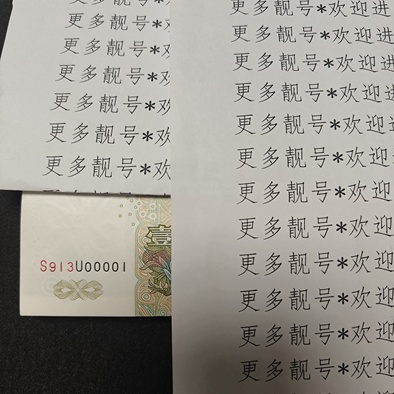 更多靓号*欢
更多靓号*欢
更多靓号*欢
更多靓号*欢
更多靓号*欢
更多靓号*欢
更多靓号*欢迎进
更多靓号*欢迎进
更多靓号*欢迎进
更多靓号*欢迎进
更多靓号*欢迎进
更多靓号*欢迎
更多靓号*欢迎
更多靓号*欢迎
更多靓号*欢迎
更多靓号*欢迎
更多靓号*欢迎
更多靓号*欢迎
壹
S913U00001